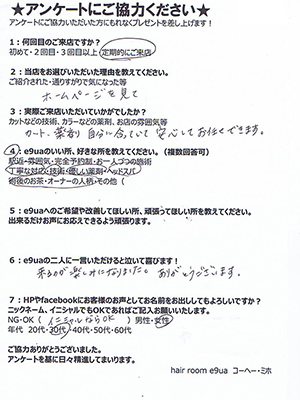 ★アンケートにご協力ください★
アンケートにご協力いただいた方にもれなくプレゼントを差し上げます！
1：何回目のご来店ですか？
初めて・2回目・3回目以上 定期的にご来店
2：当店をお選びいただいた理由を教えてください。
ご紹介された・通りすがりで気になった等
ホームページを見て
3：実際ご来店いただいていかがでしたか？
カットなどの技術、カラーなどの薬剤、お店の雰囲気等
カット、薬剤 自分に合っていて 安心してお任せできます。
4：e9uaのいい所、好きな所を教えてください。（複数回答可）
駅近・雰囲気・完全予約制・お一人づつの施術
丁寧な対応・技術・優しい薬剤・ヘッドスパ
術後のお茶・オーナーの人柄・その他（
5：e9uaへのご希望や改善してほしい所、頑張ってほしい所を教えてください。
出来るだけお声にお応えできるよう頑張ります。
6：e9uaの二人に一言いただけると泣いて喜びます！
来るのが楽しみになりました ありがとうございます。
7：HPやfacebookにお客様のお声としてお名前をお出ししてもよろしいですか？
ニックネーム、イニシャルでもOKであればご記入お願いいたします。
NG・OK（ イニシャルならOK ）男性・女性
年代 20代・30代・40代・50代・60代
ご協力ありがとうございました。
アンケートを基に日々精進してまいります。
hair room e9ua コーヘー・ミホ